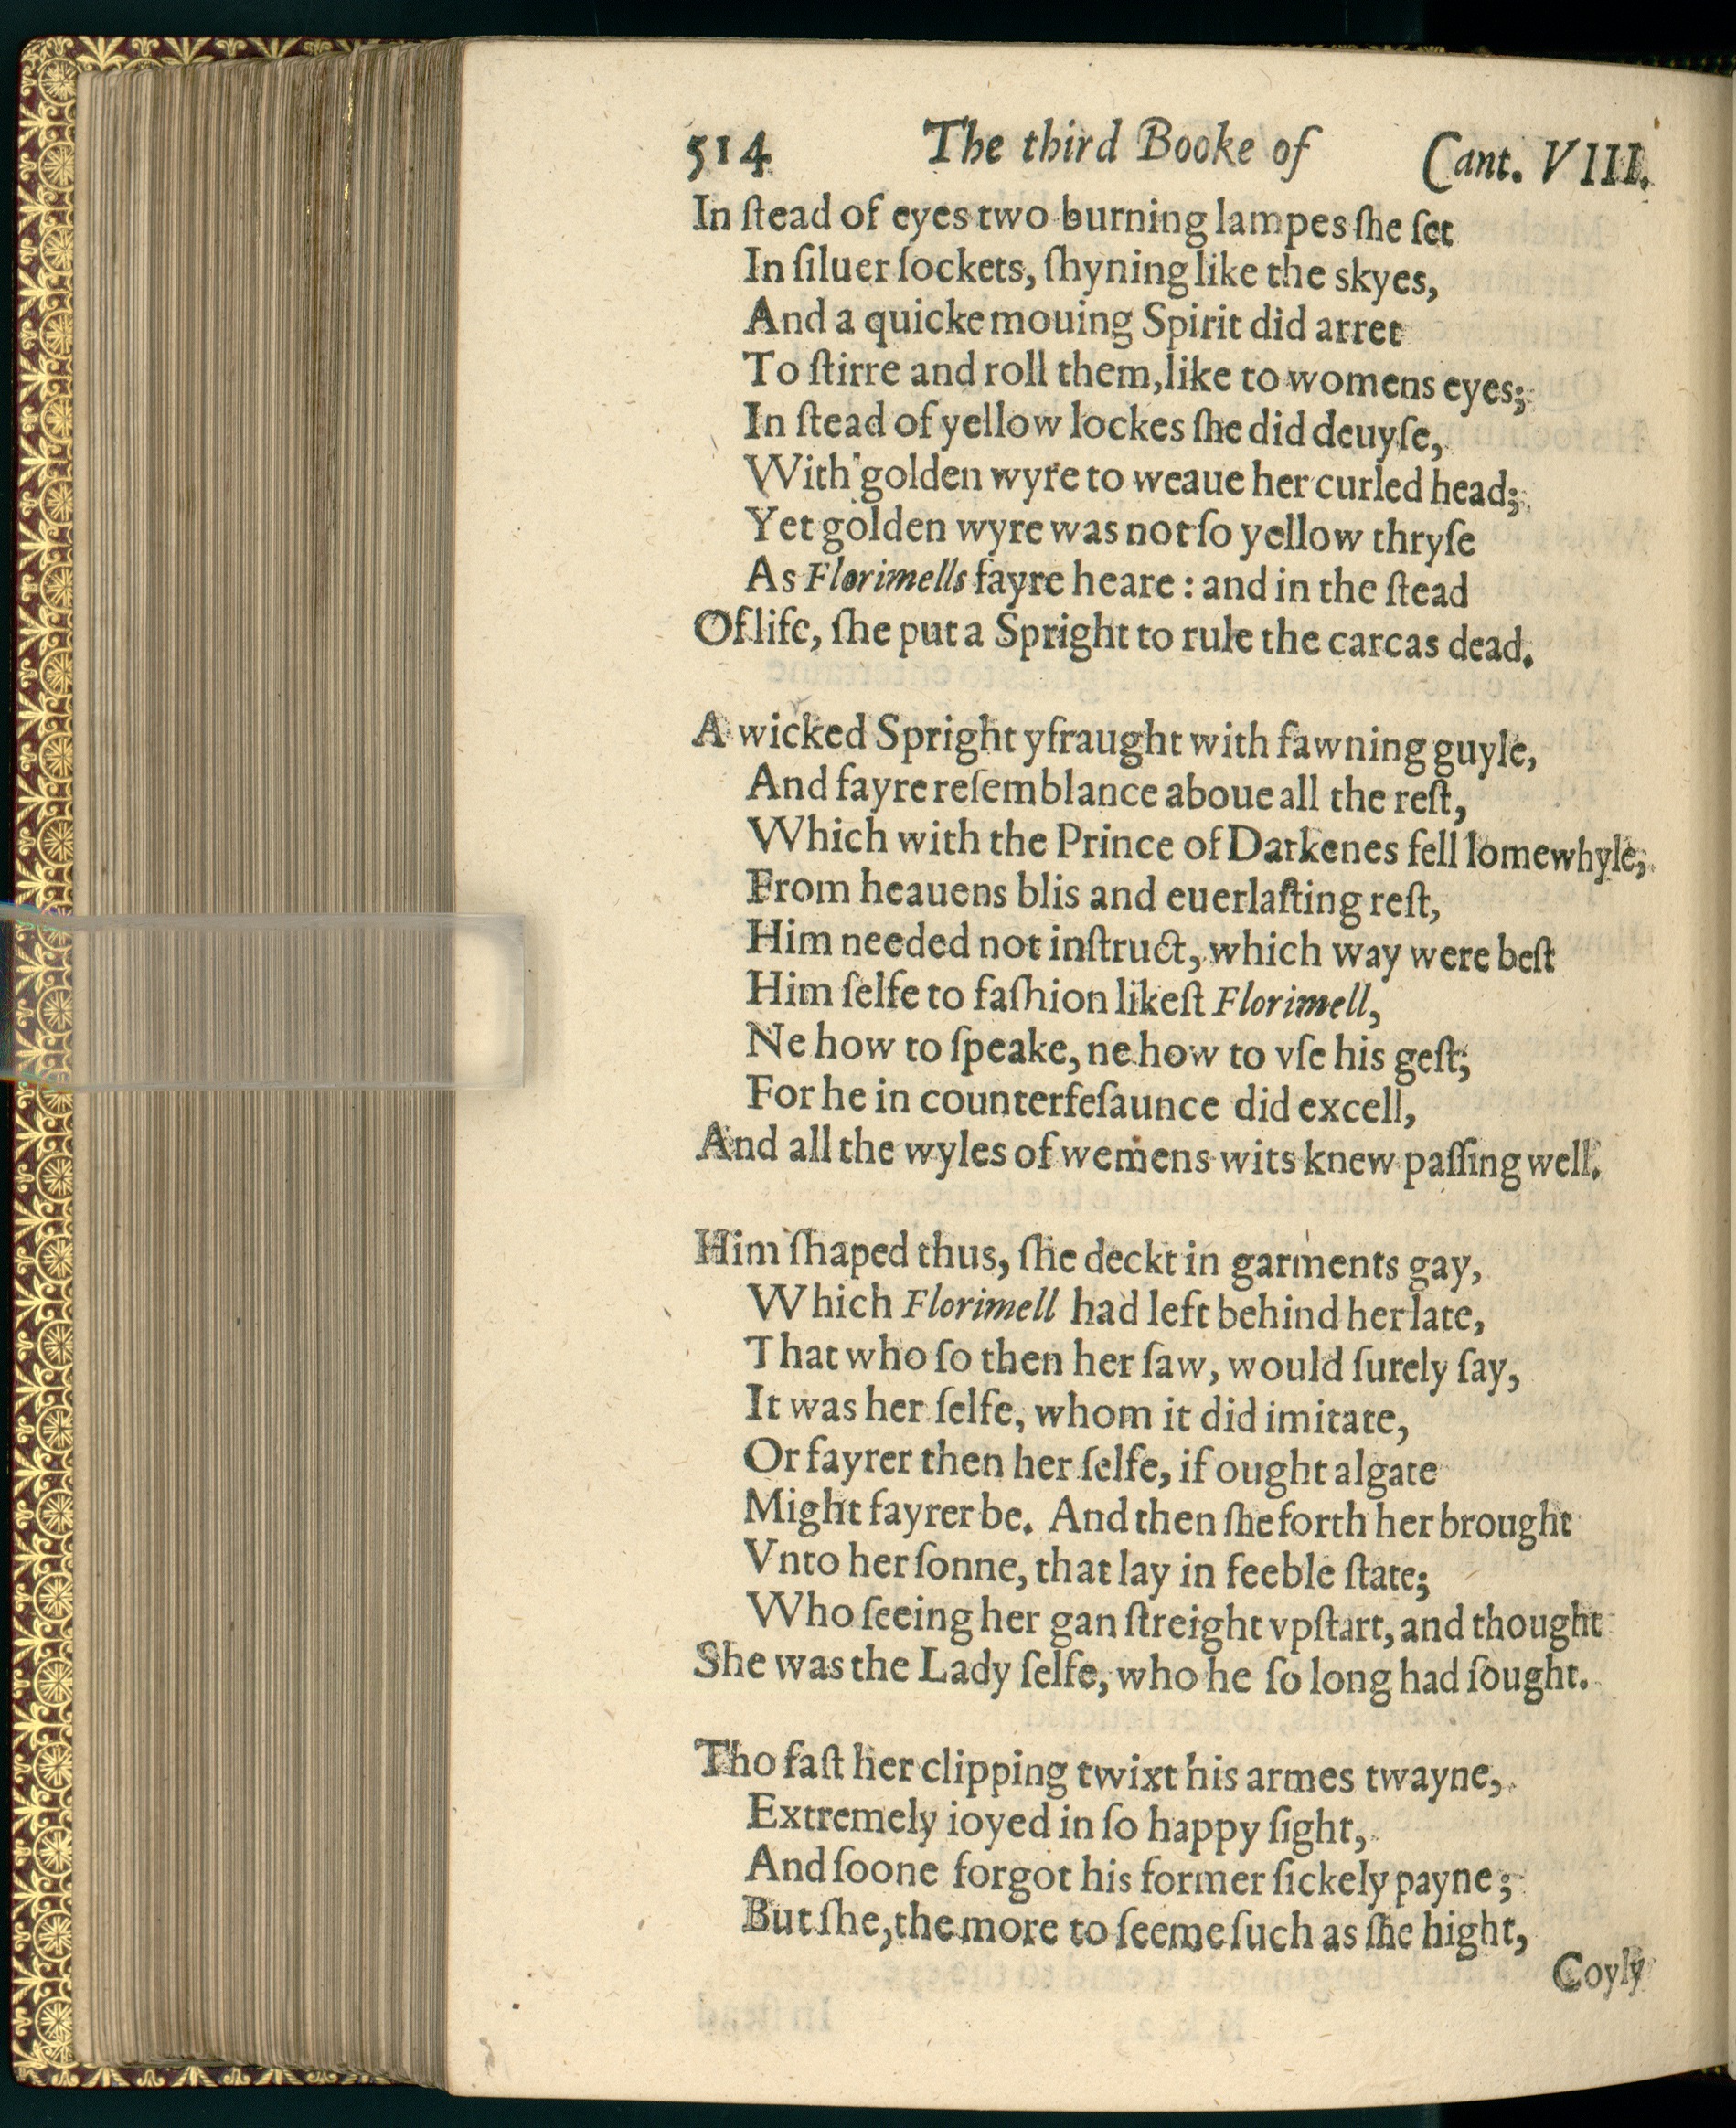 514 The third Booke of Cant. VIII.
In ſtead of eyes two burning lampes ſhe ſet
In ſiluer ſockets, ſhyning like the skyes,
And a quicke mouing Spirit did arret
To ſtirre and roll them, like to womens eyes;
In ſtead of yellow lockes ſhe did deuyſe,
With golden wyre to weaue her curled head;
Yet golden wyre was not ſo yellow thryſe
As Florimells fayre heare : and in the ſtead
Of life, ſhe put a Spright to rule the carcas dead.
A wicked Spright yfraught with fawning guyle,
And fayre reſemblance aboue all the reſt,
Which with the Prince of Darkenes fell ſomewhyle,
From heauens blis and euerlaſting reſt,
Him needed not inſtruct, which way were beſt
Him ſelfe to faſhion likeſt Florimell,
Ne how to ſpeake, ne how to vſe his geſt;
For he in counterfeſaunce did excell,
And all the wyles of wemens wits knew paſſing well.
Him ſhaped thus, ſhe deckt in garments gay,
Which Florimell had left behind her late,
That who ſo then her ſaw, would ſurely ſay,
It was her ſelfe, whom it did imitate,
Or fayrer then her ſelfe, if ought algate
Might fayrer be. And then ſhe forth her brought
Vnto her ſonne, that lay in feeble ſtate;
Who ſeeing her gan ſtreight vpſtart, and thought
She was the Lady ſelfe, who he ſo long had ſought.
Tho faſt her clipping twixt his armes twayne,
Extremely ioyed in ſo happy ſight,
And ſoone forgot his former ſickely payne;
But ſhe, the more to ſeeme ſuch as ſhe hight,
Coyly